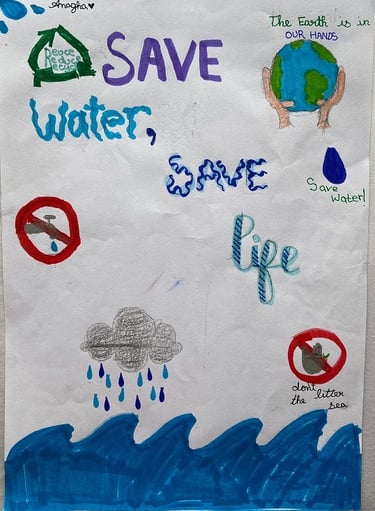 Anagha
The Earth is in
OUR HANDS
Peace
Reduce
SAVE
Water,
SAVE
Save
Water!
life
dont litter
the sea